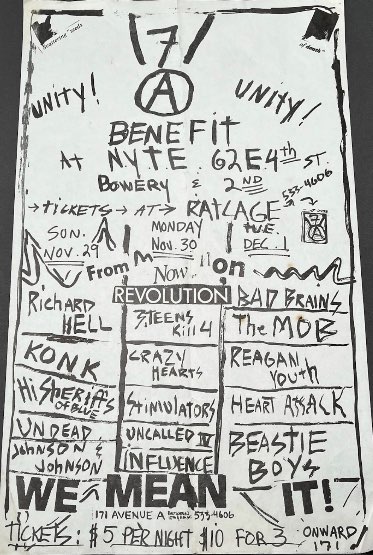 171
A
UNITY!
UNITY!
BENEFIT
AT N.Y.T.E. 62 E 4th ST.
BOWERY & 2ND
533-4606
→ TICKETS → AT → RATCAGE
SUN. NOV. 29
MONDAY NOV. 30
TUE. DEC. 1
From
Now on
REVOLUTION
RICHARD HELL
KONK
Hi SHERIFFS OF BLUE
UNDEAD
JOHNSON & JOHNSON
3 TEENS Kill 4
CRAZY HEARTS
STIMULATORS
UNCALLED IV
INFLUENCE
BAD BRAINS
The MOB
REAGAN YOUTH
HEART ATTACK
BEASTIE BOYS
WE MEAN IT!
171 AVENUE A 533-4606
TICKETS: $5 PER NIGHT $10 FOR 3
ONWARD 171!